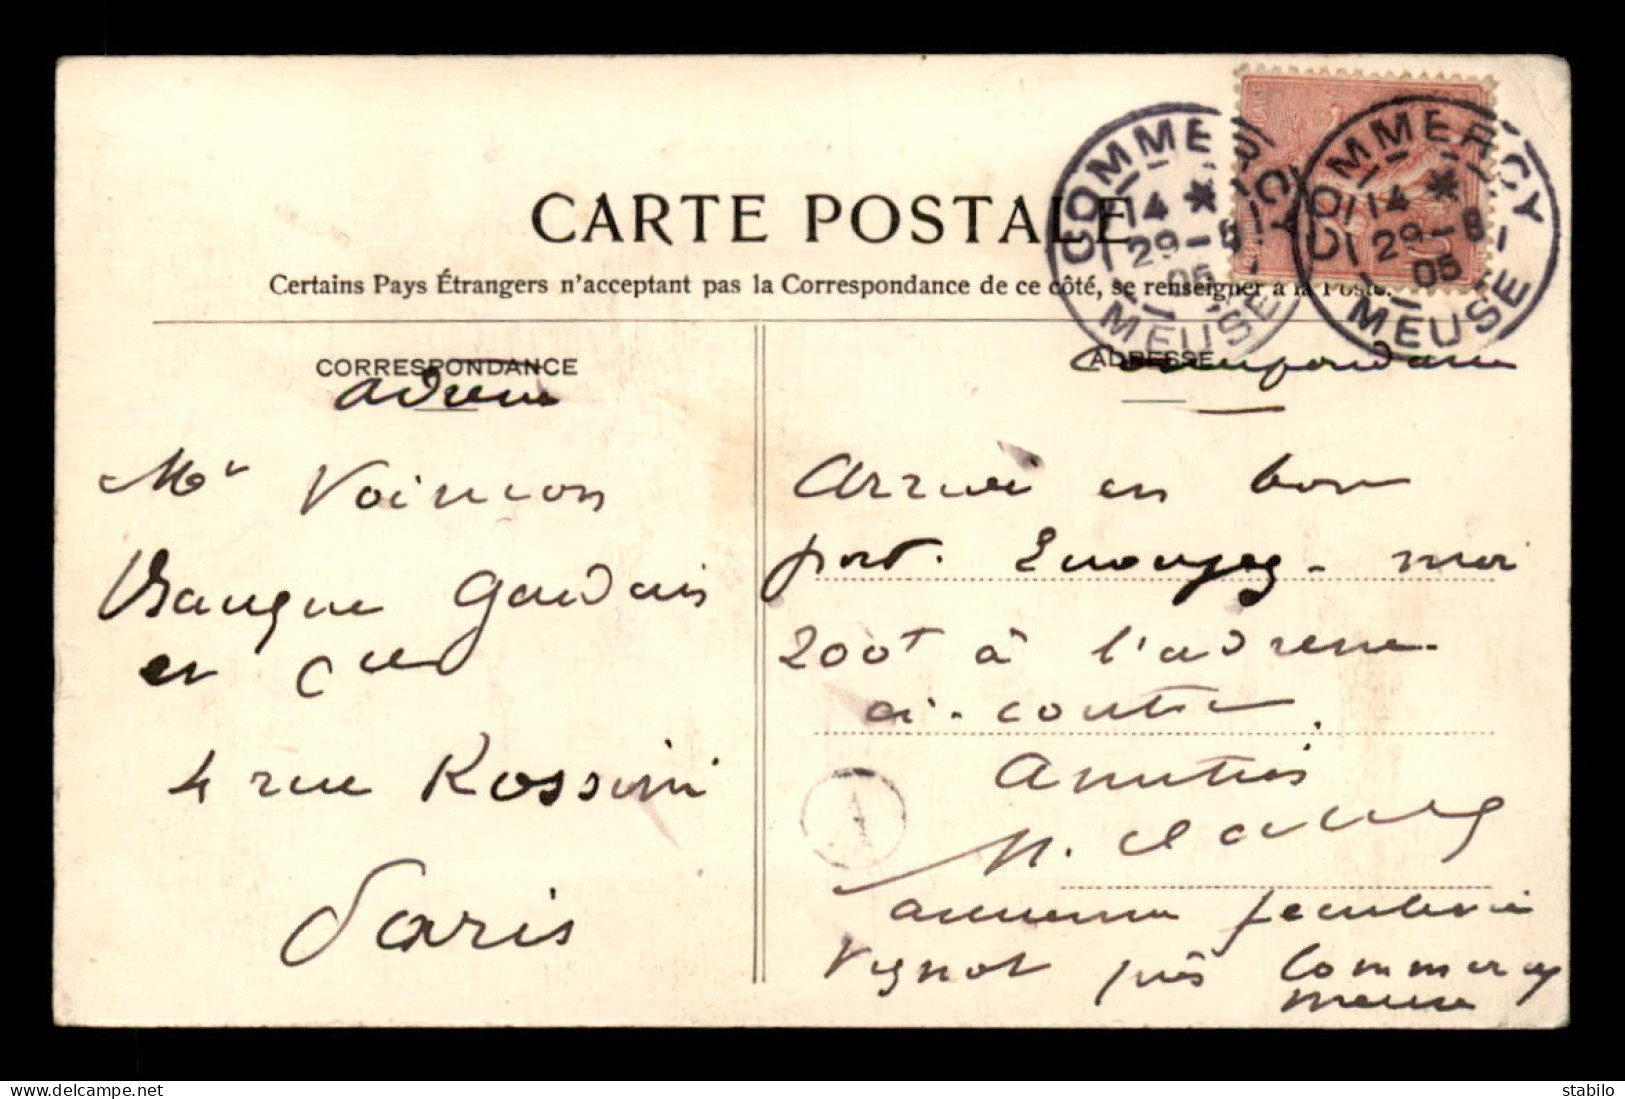 CARTE POSTALE
Certains Pays Étrangers n'acceptant pas la Correspondance de ce côté, se renseigner à la Poste.
COMMERCY
14 *
29-8
05
MEUSE
COMMERCY
14 *
29-8
05
MEUSE
CORRESPONDANCE
adresse
Mr Voincon
Banque Gaudais
et Cie
4 rue Rossini
Paris
ADRESSE
Correspondance
Arrivé en bon
port. Envoyez-moi
200f à l'adresse
ci-contre
Amitiés
A
ancienne feculerie
Vignot près Commercy
Meuse
delcampe.net
stabilo